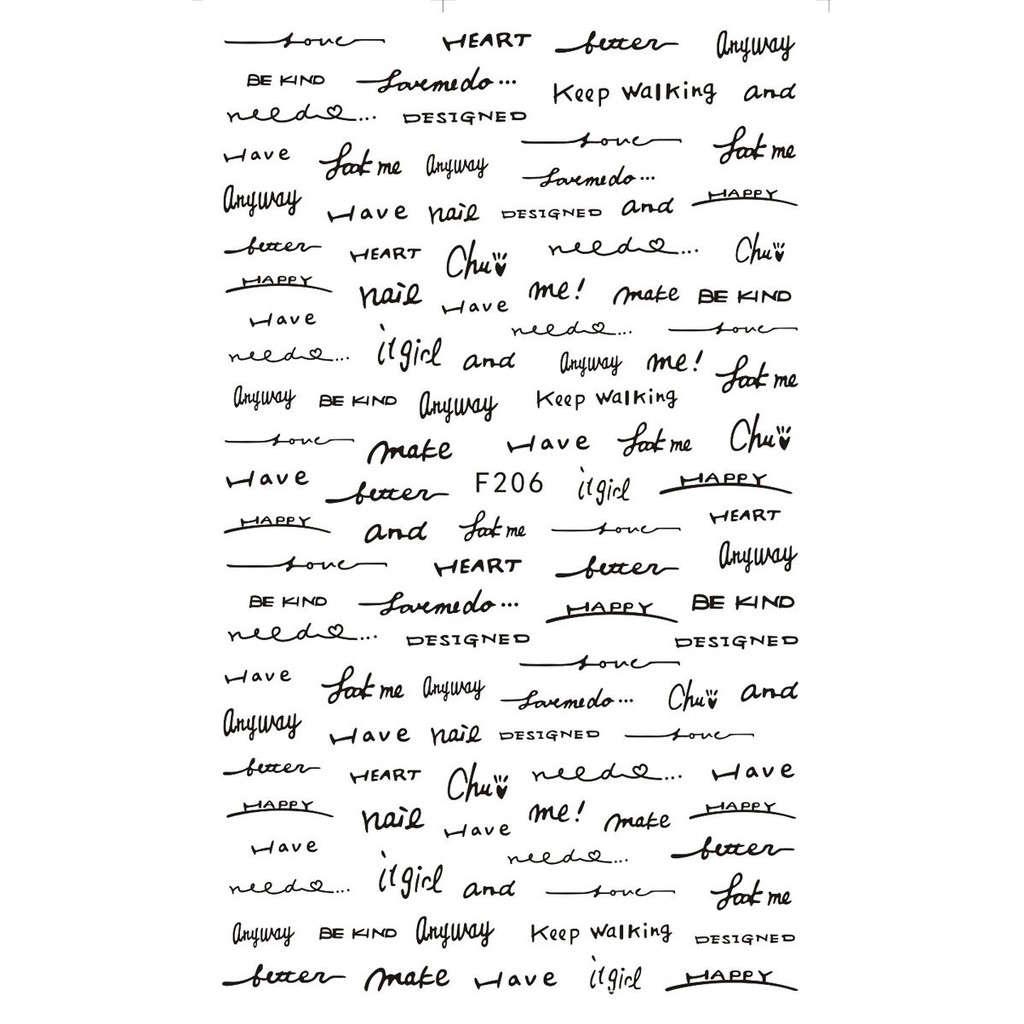 Love HEART better Anyway
BE KIND Lovemedo...
Keep walking and
need... DESIGNED
Love
Have Look me Anyway Look me
Lovemedo...
Anyway HAPPY
Have nail DESIGNED and
better HEART Chu need... Chu
HAPPY nail Have me! make BE KIND
Have
need... Love
need... it girl and Anyway me! Look me
Anyway BE KIND Anyway Keep walking
Love make Have Look me Chu
Have better F206 it girl HAPPY
HAPPY and Look me Love HEART
Love HEART better Anyway
BE KIND Lovemedo... HAPPY BE KIND
need... DESIGNED DESIGNED
Love
Have Look me Anyway Lovemedo... Chu and
Anyway Have nail DESIGNED Love
better HEART Chu need... Have
HAPPY nail Have me! make HAPPY
Have need... better
need... it girl and Love Look me
Anyway BE KIND Anyway Keep walking DESIGNED
better make Have it girl HAPPY